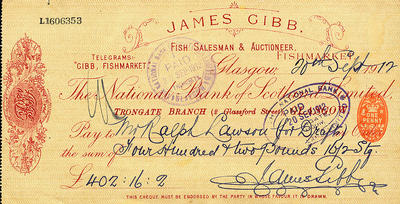 L1606353
JAMES GIBB.
FISH SALESMAN & AUCTIONEER.
TELEGRAMS:
"GIBB, FISHMARKET."
FISHMARKET
Glasgow, 20th Sept 1912
The National Bank of Scotland Limited,
TRONGATE BRANCH (2 Glassford Street) GLASGOW
Pay to Mr Ralph Lawson (for Draft) or Order
the sum of Four Hundred & two Pounds 16/2 Stg
£402:16:2
James Gibb
THIS CHEQUE MUST BE ENDORSED BY THE PARTY IN WHOSE FAVOUR IT IS DRAWN.
NATIONAL BANK
PAID
ONE PENNY